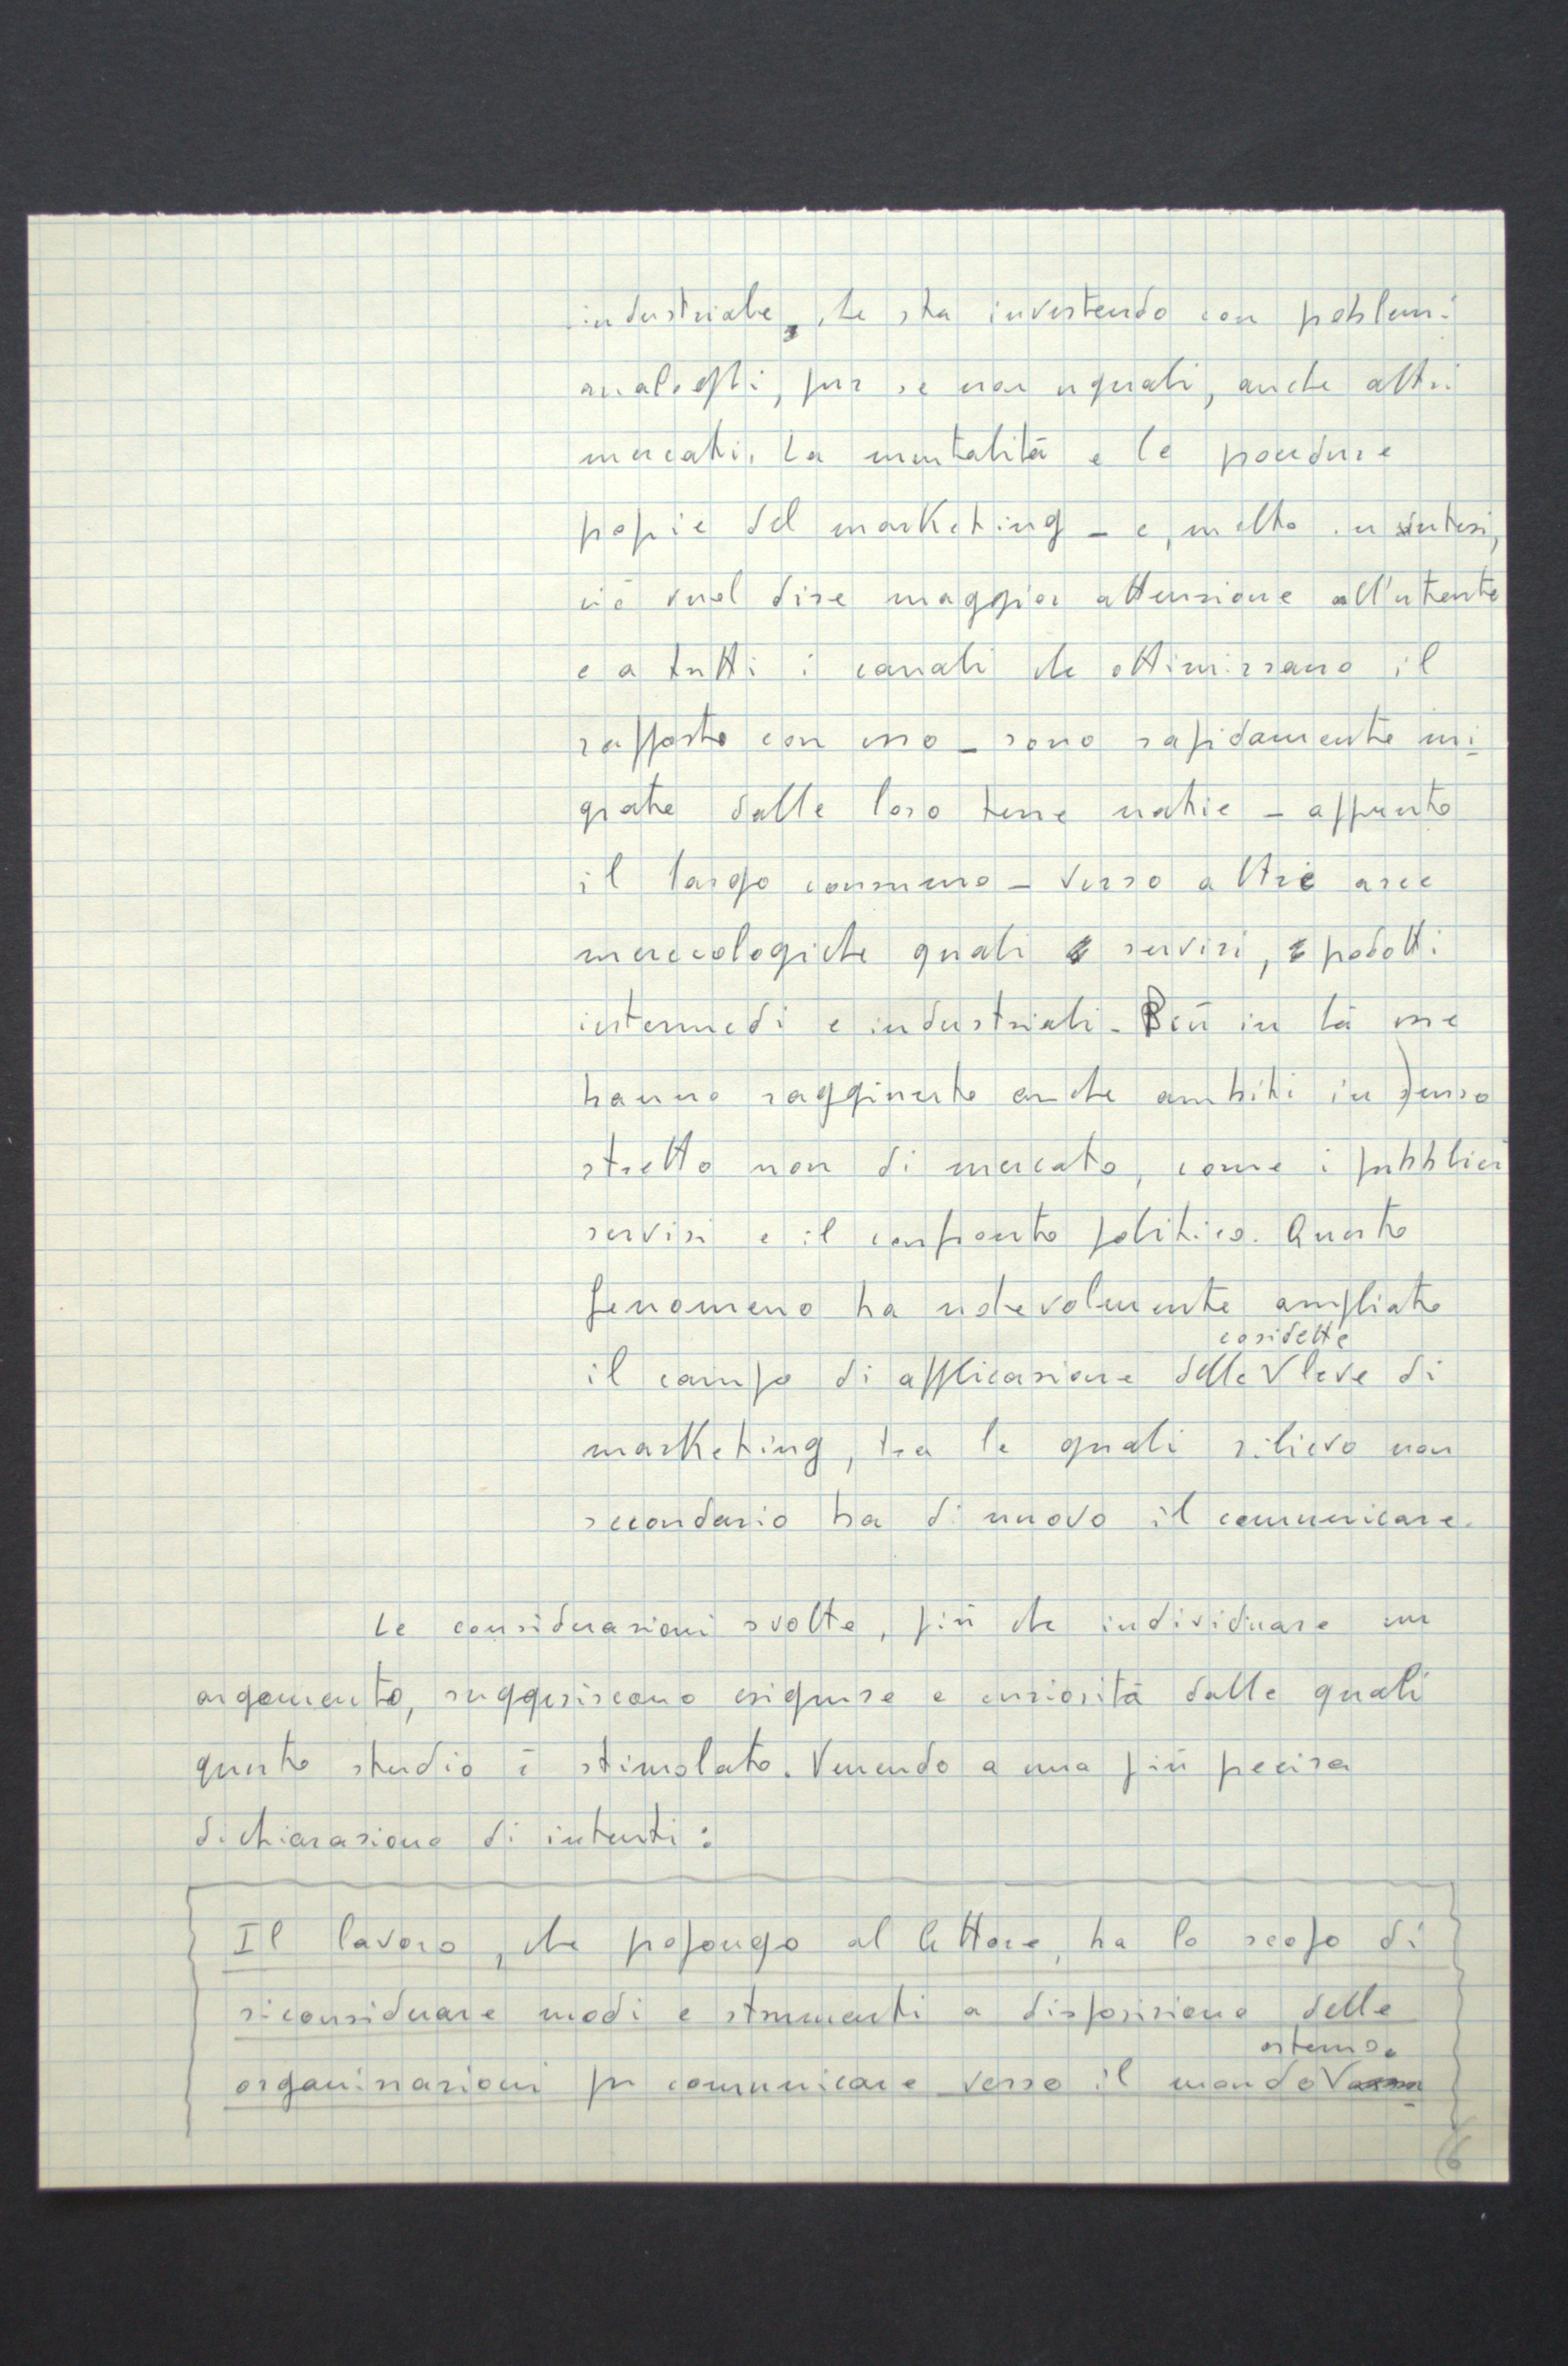 industriale, che sta investendo con problemi
analoghi, pur se non uguali, anche altri
mercati. La mentalità e le procedure
proprie del marketing - e, molto in sintesi,
ciò vuol dire maggior attenzione all'utente
e a tutti i canali che ottimizzano il
rapporto con esso - sono rapidamente mi
grate dalle loro terre natie - appunto
il largo consumo - verso altre aree
merceologiche quali servizi, prodotti
intermedi e industriali. Ben in là esse
hanno raggiunto anche ambiti in senso
stretto non di mercato, come i pubblici
servizi e il confronto politico. Questo
fenomeno ha notevolmente ampliato
il campo di applicazione delle cosidette leve di
marketing, tra le quali rilievo non
secondario ha di nuovo il comunicare.
Le considerazioni svolte, più che individuare un
argomento, suggeriscono esigenze e curiosità dalle quali
questo studio è stimolato. Venendo a una più precisa
dichiarazione di intenti:
Il lavoro, che propongo al lettore, ha lo scopo di
riconsiderare modi e strumenti a disposizione delle
organizzazioni per comunicare verso il mondo esterno.
6